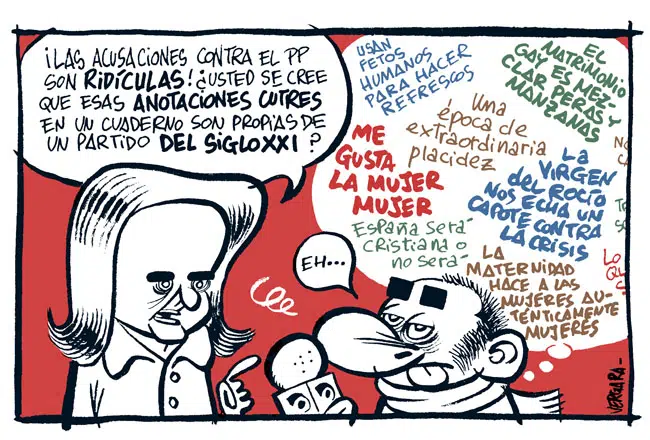 ¡LAS ACUSACIONES CONTRA EL PP
SON RIDÍCULAS! ¿USTED SE CREE
QUE ESAS ANOTACIONES CUTRES
EN UN CUADERNO SON PROPIAS DE
UN PARTIDO DEL SIGLO XXI?
EH...
USAN
FETOS
HUMANOS
PARA HACER
REFRESCOS
EL
MATRIMONIO
GAY ES MEZ-
CLAR PERAS Y
MANZANAS
Una
época de
extraordinaria
placidez
ME
GUSTA
LA MUJER
MUJER
LA
VIRGEN
del ROCÍO
NOS ECHA UN
CAPOTE CONTRA
LA CRISIS
España será
cristiana o
no será
LA
MATERNIDAD
HACE A LAS
MUJERES AU-
TÉNTICAMENTE
MUJERES
VERGARA-